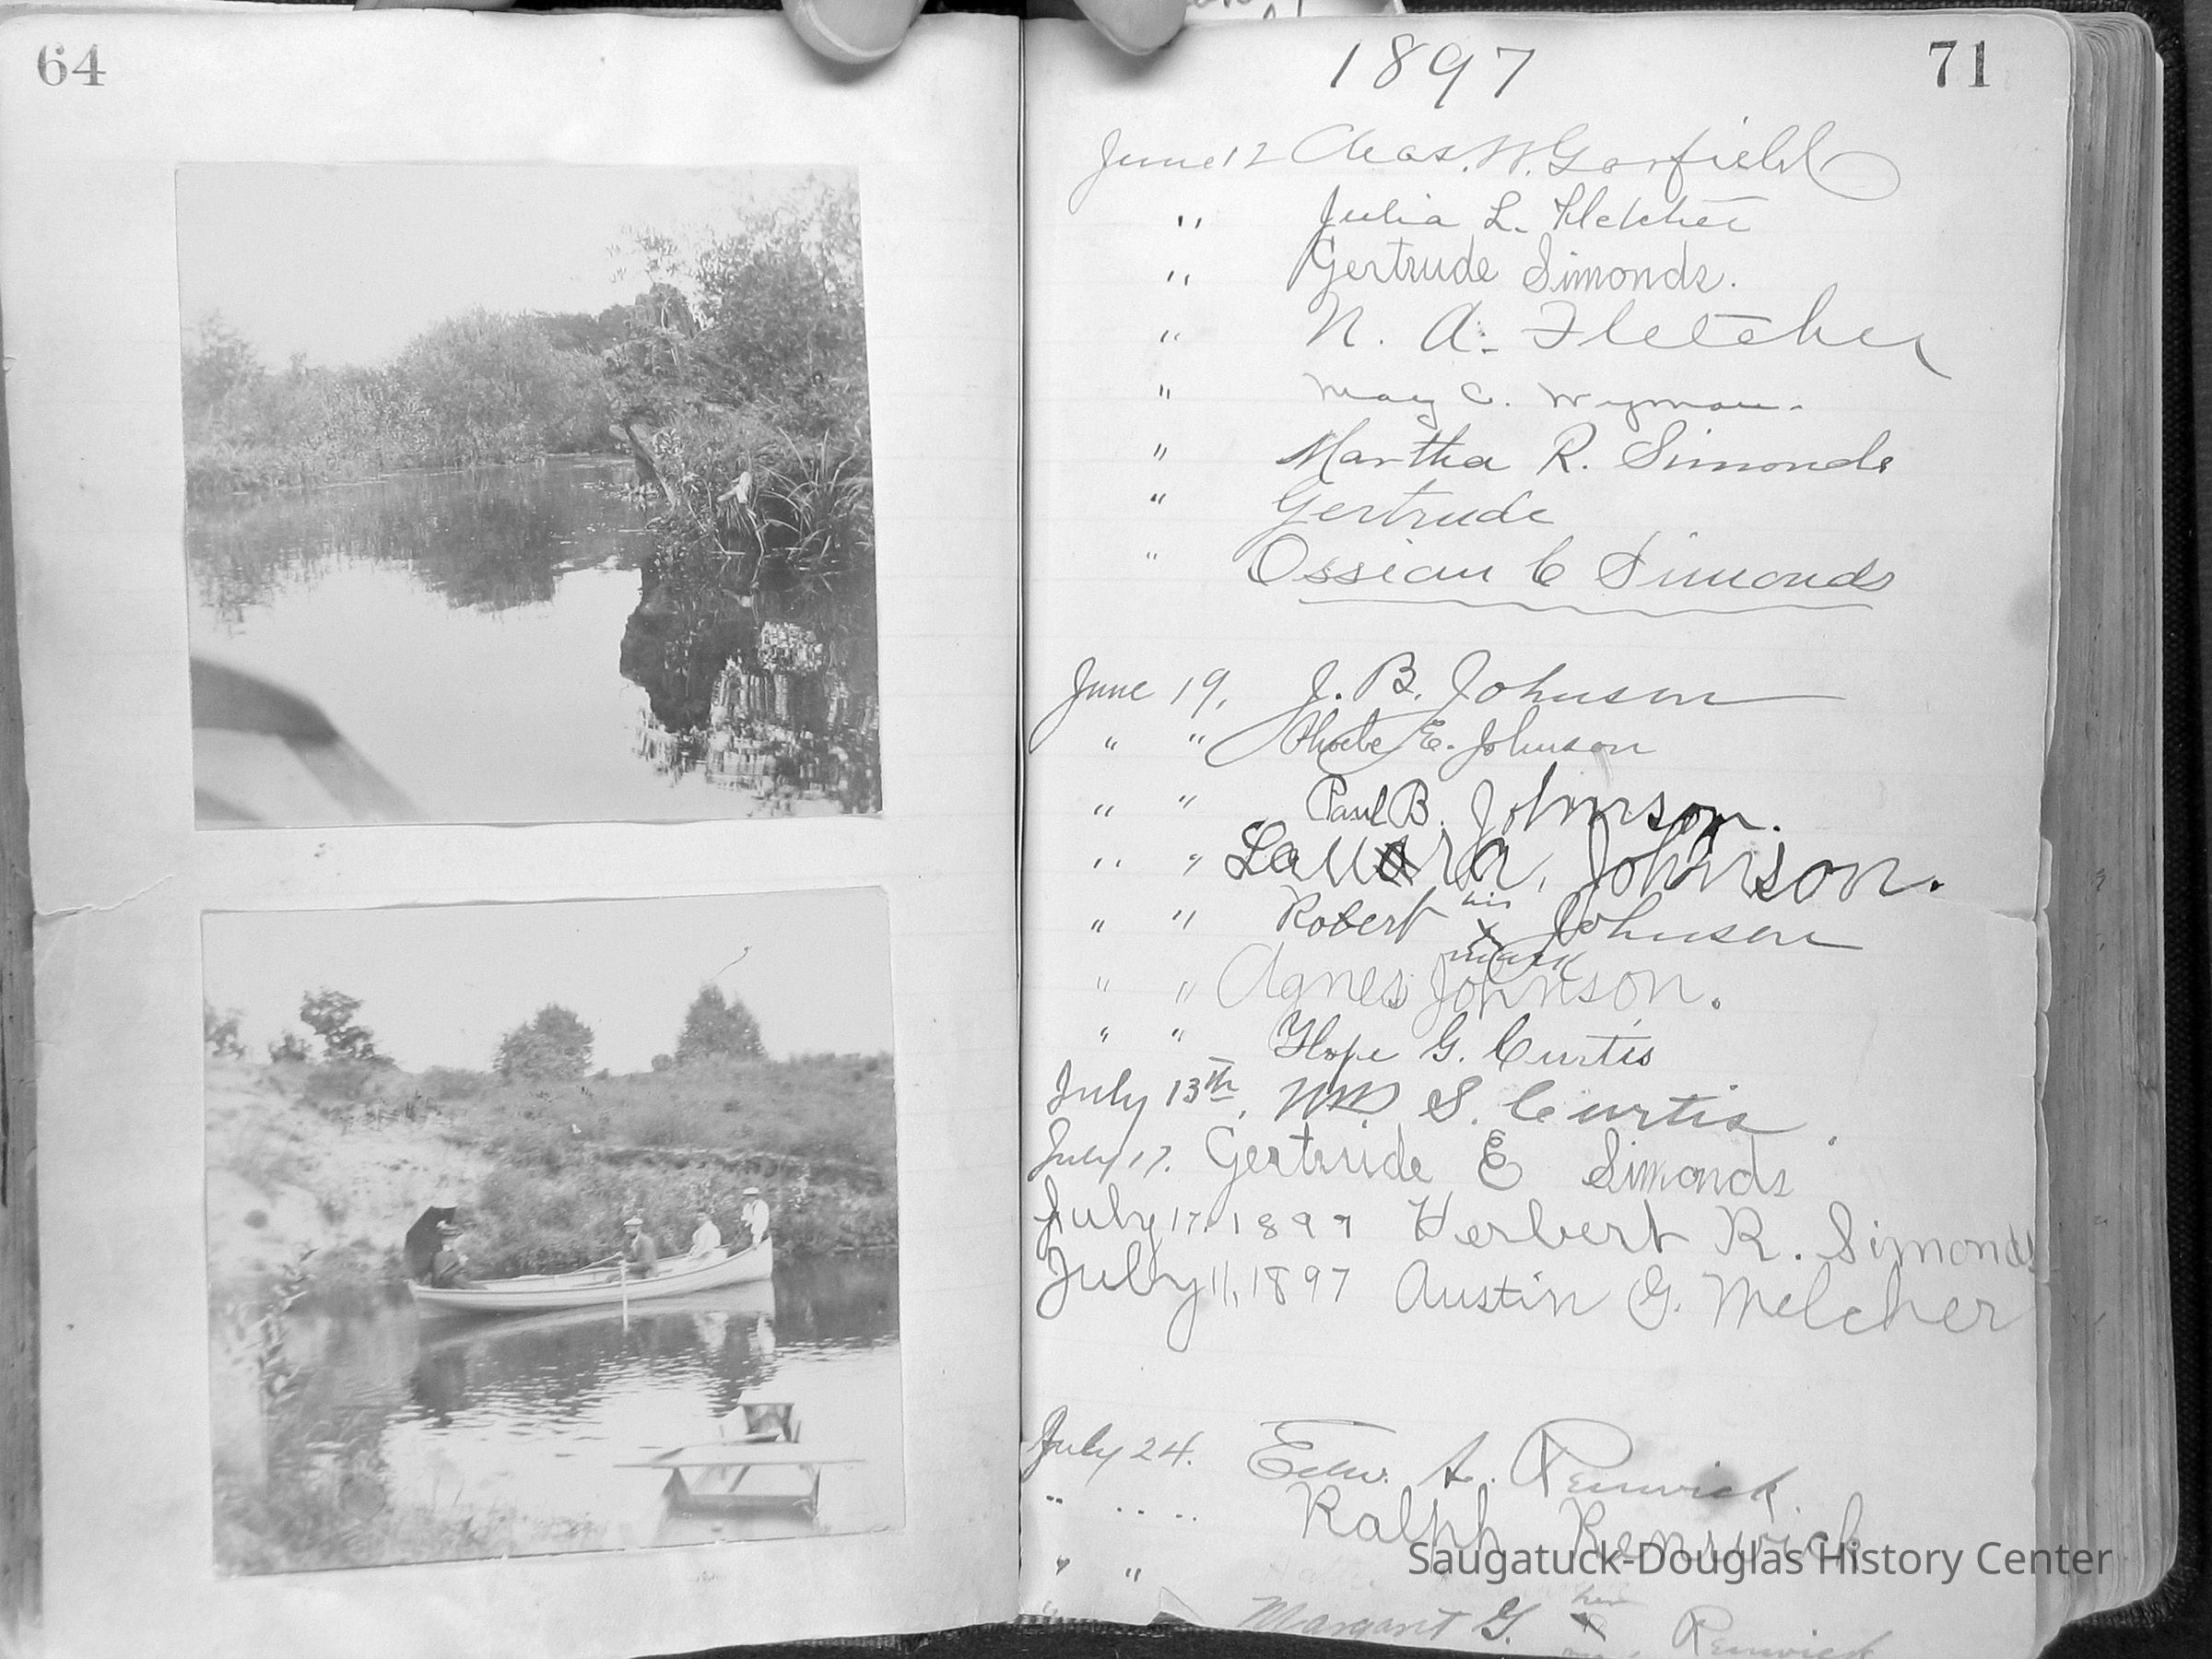 64
1897
71
June 12 Chas. W. Garfield
" Julia L. Fletcher
" Gertrude Simonds.
" N. A. Fletcher
" Mary C. Wyman.
" Martha R. Simonds
" Gertrude
" Ossian C Simonds
June 19, J. B. Johnson
" " Phoebe E. Johnson
" " Paul B. Johnson.
" " Laura, Johnson.
" " Robert his x mark Johnson
" " Agnes Johnson.
" " Hope G. Curtis
July 13th, Wm S. Curtis.
July 17. Gertride E Simonds
July 17. 1897 Herbert R. Simonds
July 11, 1897 Austin G. Melcher
July 24. Edw. A. Renwick.
" " Ralph Renwick
" "
" Margaret G. her x Renwick
Saugatuck-Douglas History Center